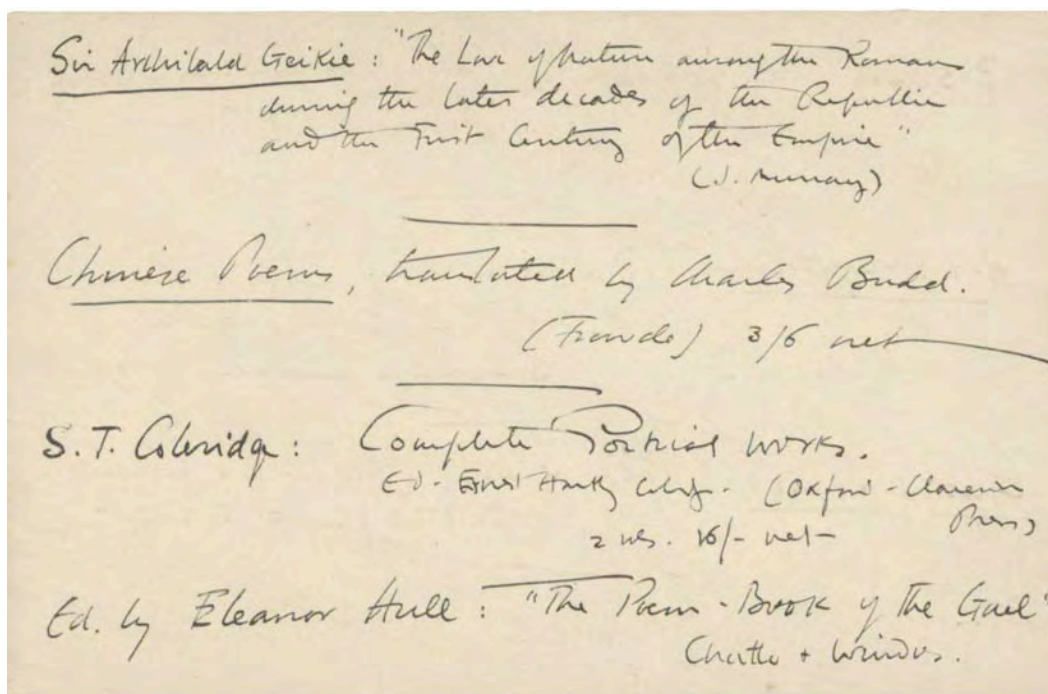 Sir Archibald Geikie : "The Love of Nature among the Romans
during the later decades of the Republic
and the First Century of the Empire"
(J. Murray)
Chinese Poems, translated by Charles Budd.
(Frowde) 3/6 net
S. T. Coleridge : Complete Poetical Works.
Ed. Ernest Hartley Coleridge. (Oxford - Clarendon
Press)
2 vols. 16/- net
Ed. by Eleanor Hull : "The Poem-Book of the Gael"
Chatto + Windus.